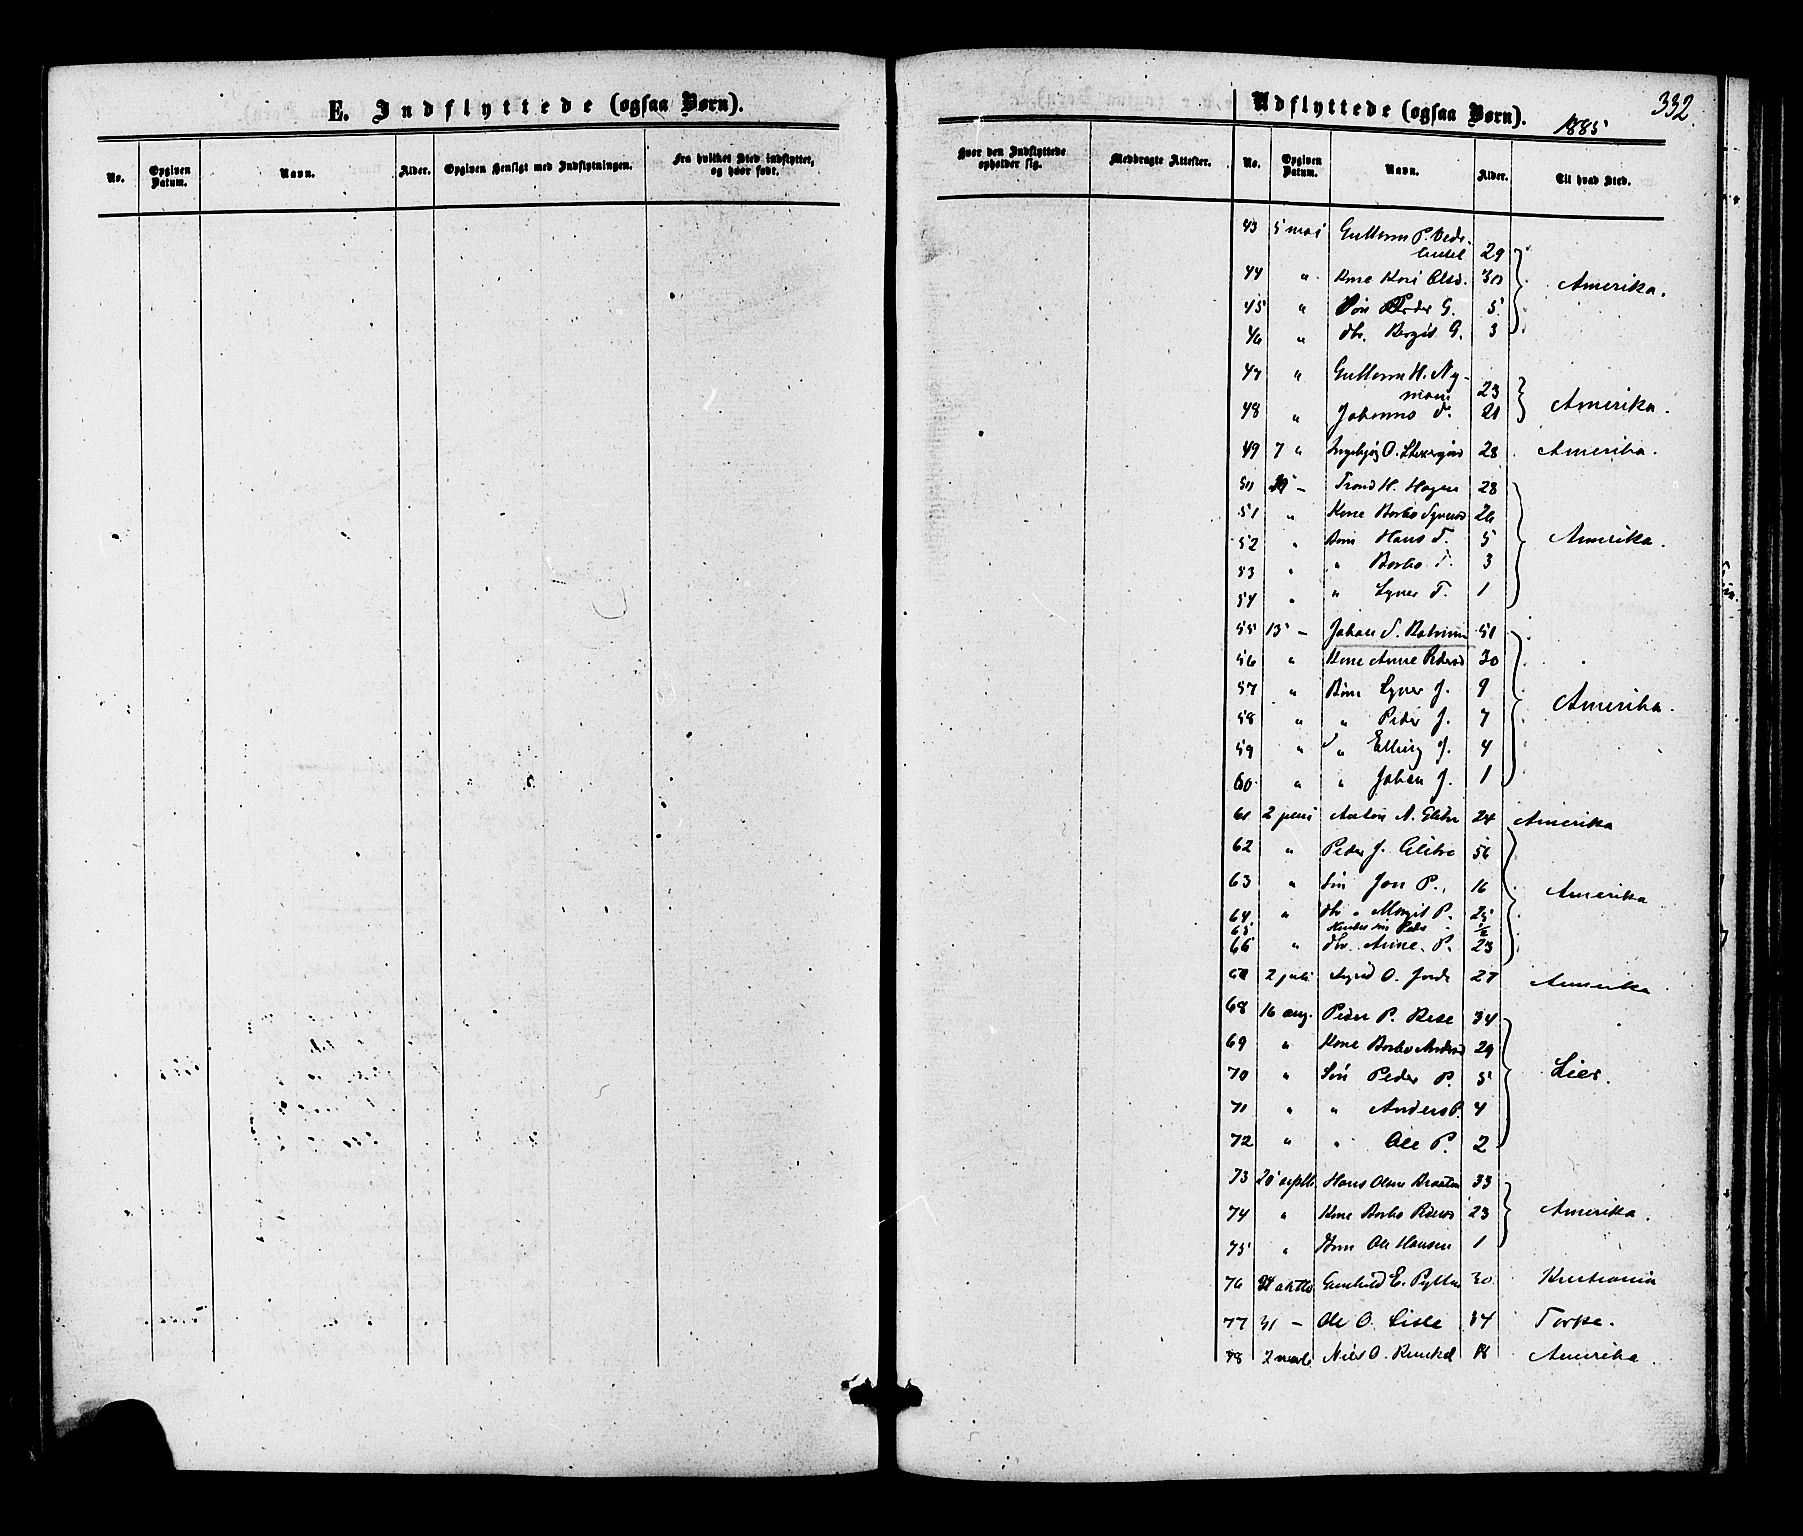 E. Indflyttede (ogsaa Børn).
No. Opgiven Datum. Navn. Alder. Opgiven Hensigt med Indflytningen. Fra hvilket Sted indflyttet, og hvor født.
Udflyttede (ogsaa Børn). 332.
1885
Hvor den Indflyttede opholder sig. Medbragte Attester. No. Opgiven Datum. Navn. Alder. Til hvad Sted.
43 5 mai Guttorm P.
29
44 " Kone Kari Olsd. 30 Amerika.
45 " Søn Peder G. 5
46 " dtr. Bergit G. 3
47 " Guttorm H. Ny-
moen 23
48 " Johannes 21 Amerika.
49 7 " Ingebjørg O. 28 Amerika.
50 – Trond H. Hagen 28
51 " Kone Barbo Syversd 26
52 " Børn Hans T. 5 Amerika.
53 " " Barbo T. 3
54 " " Syver T. 1
55 13 – Johan S. 51
56 " Kone Anne Pedersd 30
57 " Børn Syver J. 9
58 " " Peder J. 7 Amerika.
59 " " Elling J. 4
60 " " Johan J. 1
61 2 juni Anton A. 24 Amerika
62 " Peder J. 56
63 " Søn Jon P. 16 Amerika
64 " dtr " Margit P. 25
65 1/2
66 " dtr. Anne P. 23
67 2 juli O. Jorde 27 Amerika
68 16 aug. Peder P. 34
69 " Kone Barbo Andersd 29
70 " Søn Peder P. 5 Lier.
71 " " Anders P. 4
72 " " Ole P. 2
73 20 septb Hans Olsen Braaten 33
74 " Kone Barbo Pedersd 23 Amerika.
75 " Børn Ole Hansen 1
76 oktbr Gunhild E. 30 Kristiania
77 31 – Ole O. Lisle Torpe.
78 2 novb Niels O. 18 Amerika